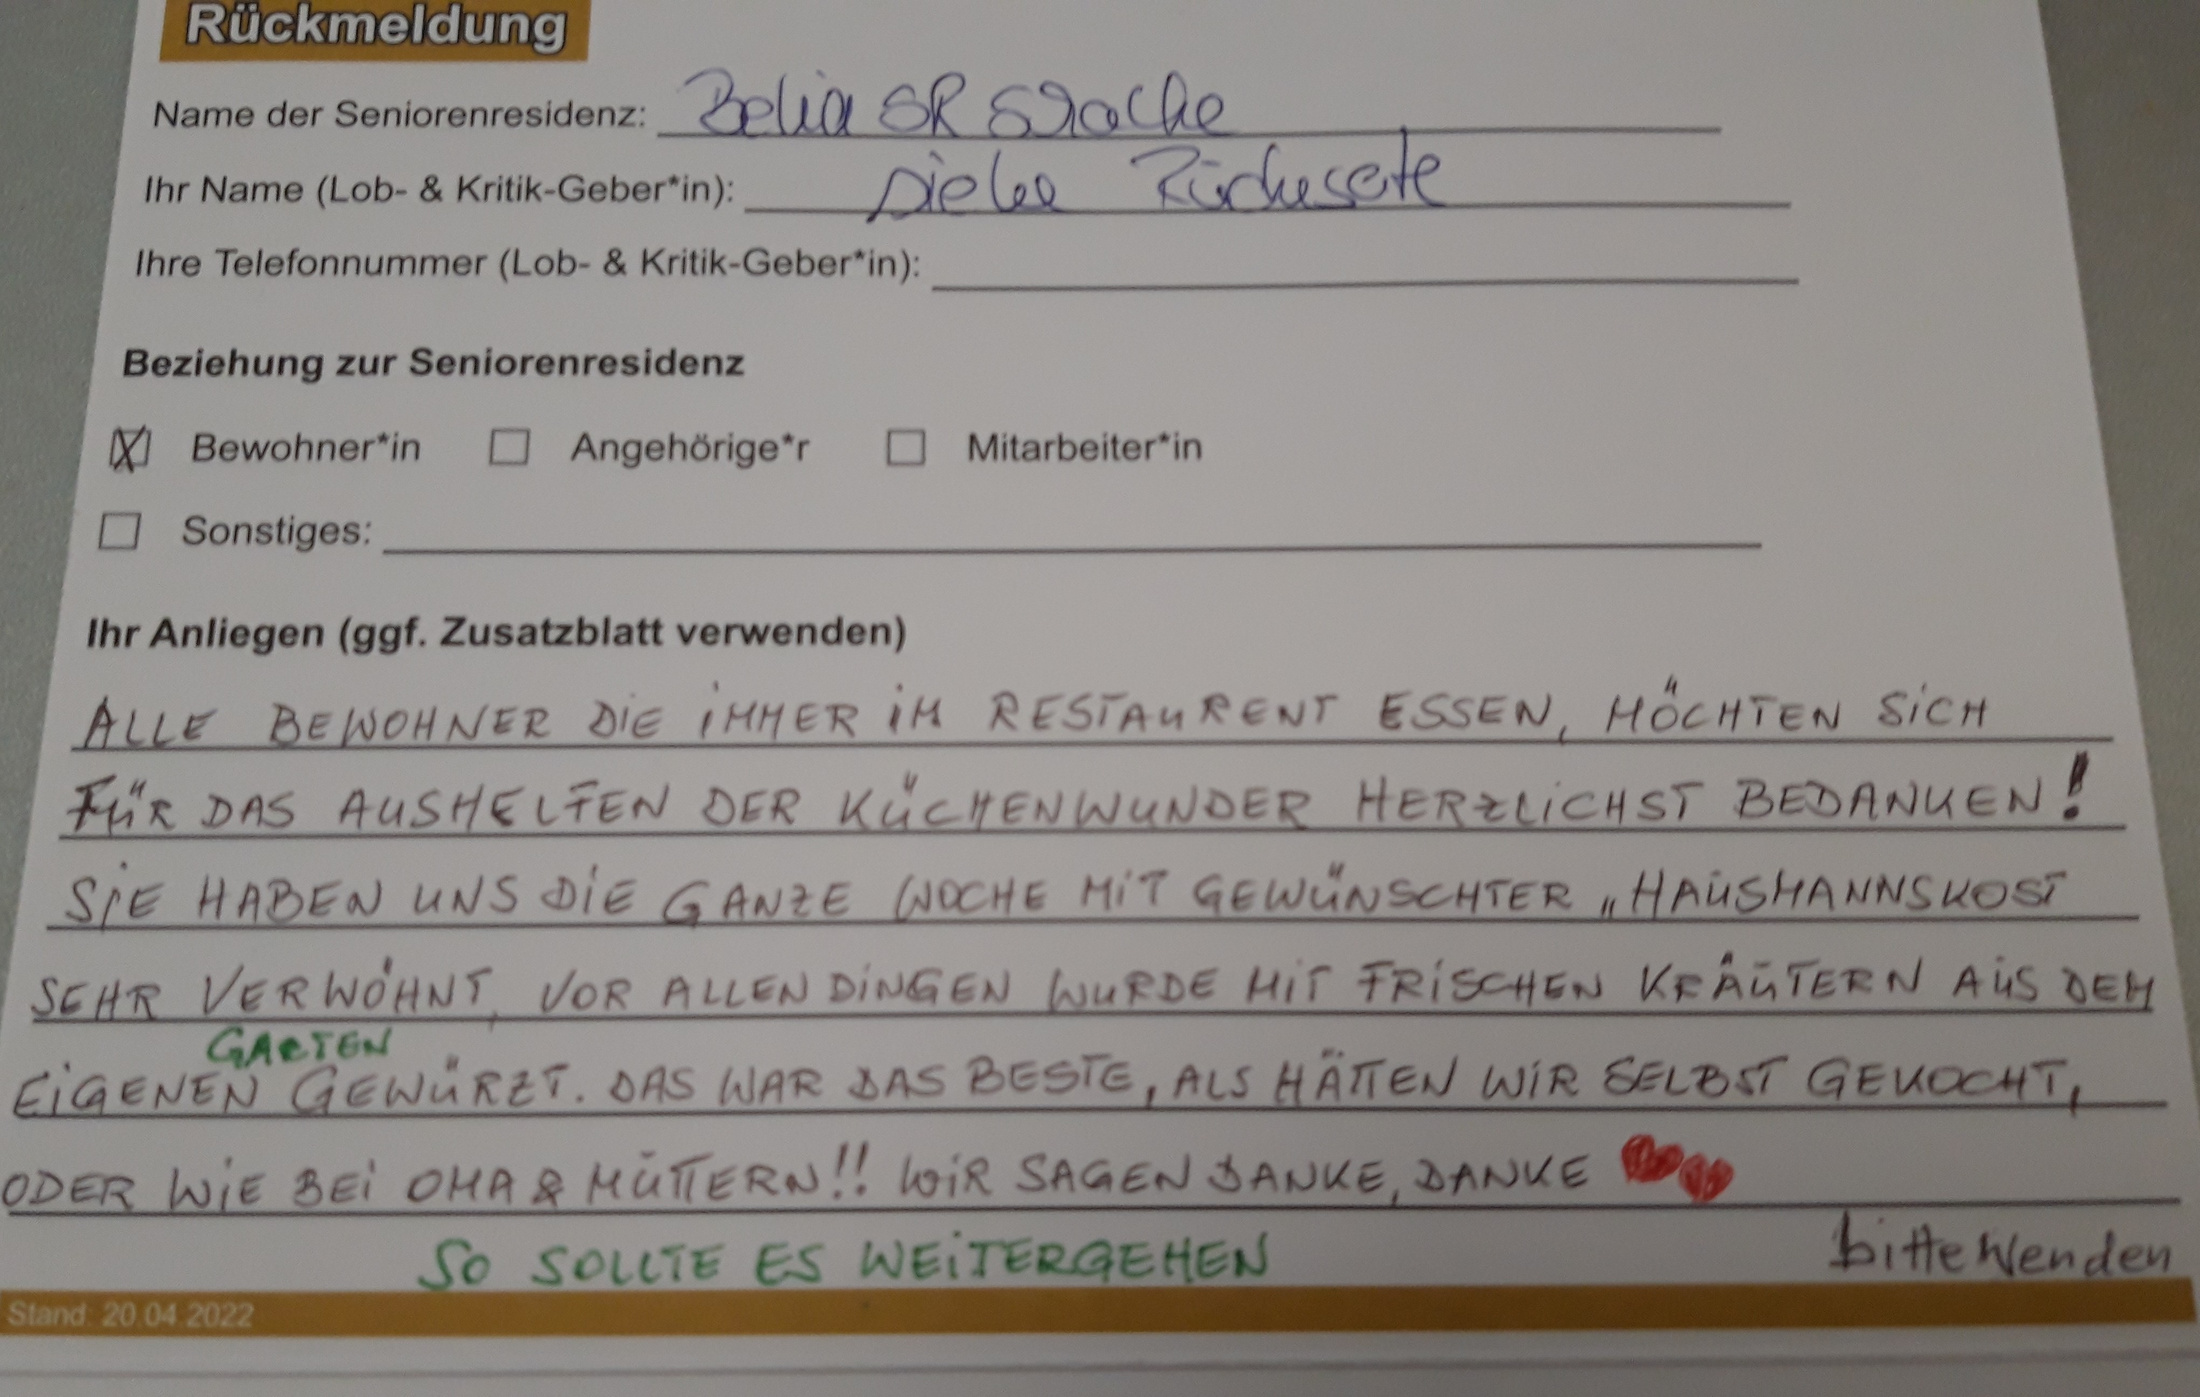 Rückmeldung
Name der Seniorenresidenz: Belia SR
Ihr Name (Lob- & Kritik-Geber*in): Siehe Rückseite
Ihre Telefonnummer (Lob- & Kritik-Geber*in):
Beziehung zur Seniorenresidenz
Bewohner*in Angehörige*r Mitarbeiter*in
Sonstiges:
Ihr Anliegen (ggf. Zusatzblatt verwenden)
ALLE BEWOHNER DIE IMMER IM RESTAURENT ESSEN, MÖCHTEN SICH
FÜR DAS AUSHELFEN DER KÜCHENWUNDER HERZLICHST BEDANKEN!
SIE HABEN UNS DIE GANZE WOCHE MIT GEWÜNSCHTER „HAUSMANNSKOST
SEHR VERWÖHNT, VOR ALLEN DINGEN WURDE MIT FRISCHEN KRÄUTERN AUS DEM
GARTEN
EIGENEN GEWÜRZT. DAS WAR DAS BESTE, ALS HÄTTEN WIR SELBST GEKOCHT,
ODER WIE BEI OMA & MÜTTERN!! WIR SAGEN DANKE, DANKE
SO SOLLTE ES WEITERGEHEN
bitte Wenden
Stand: 20.04.2022